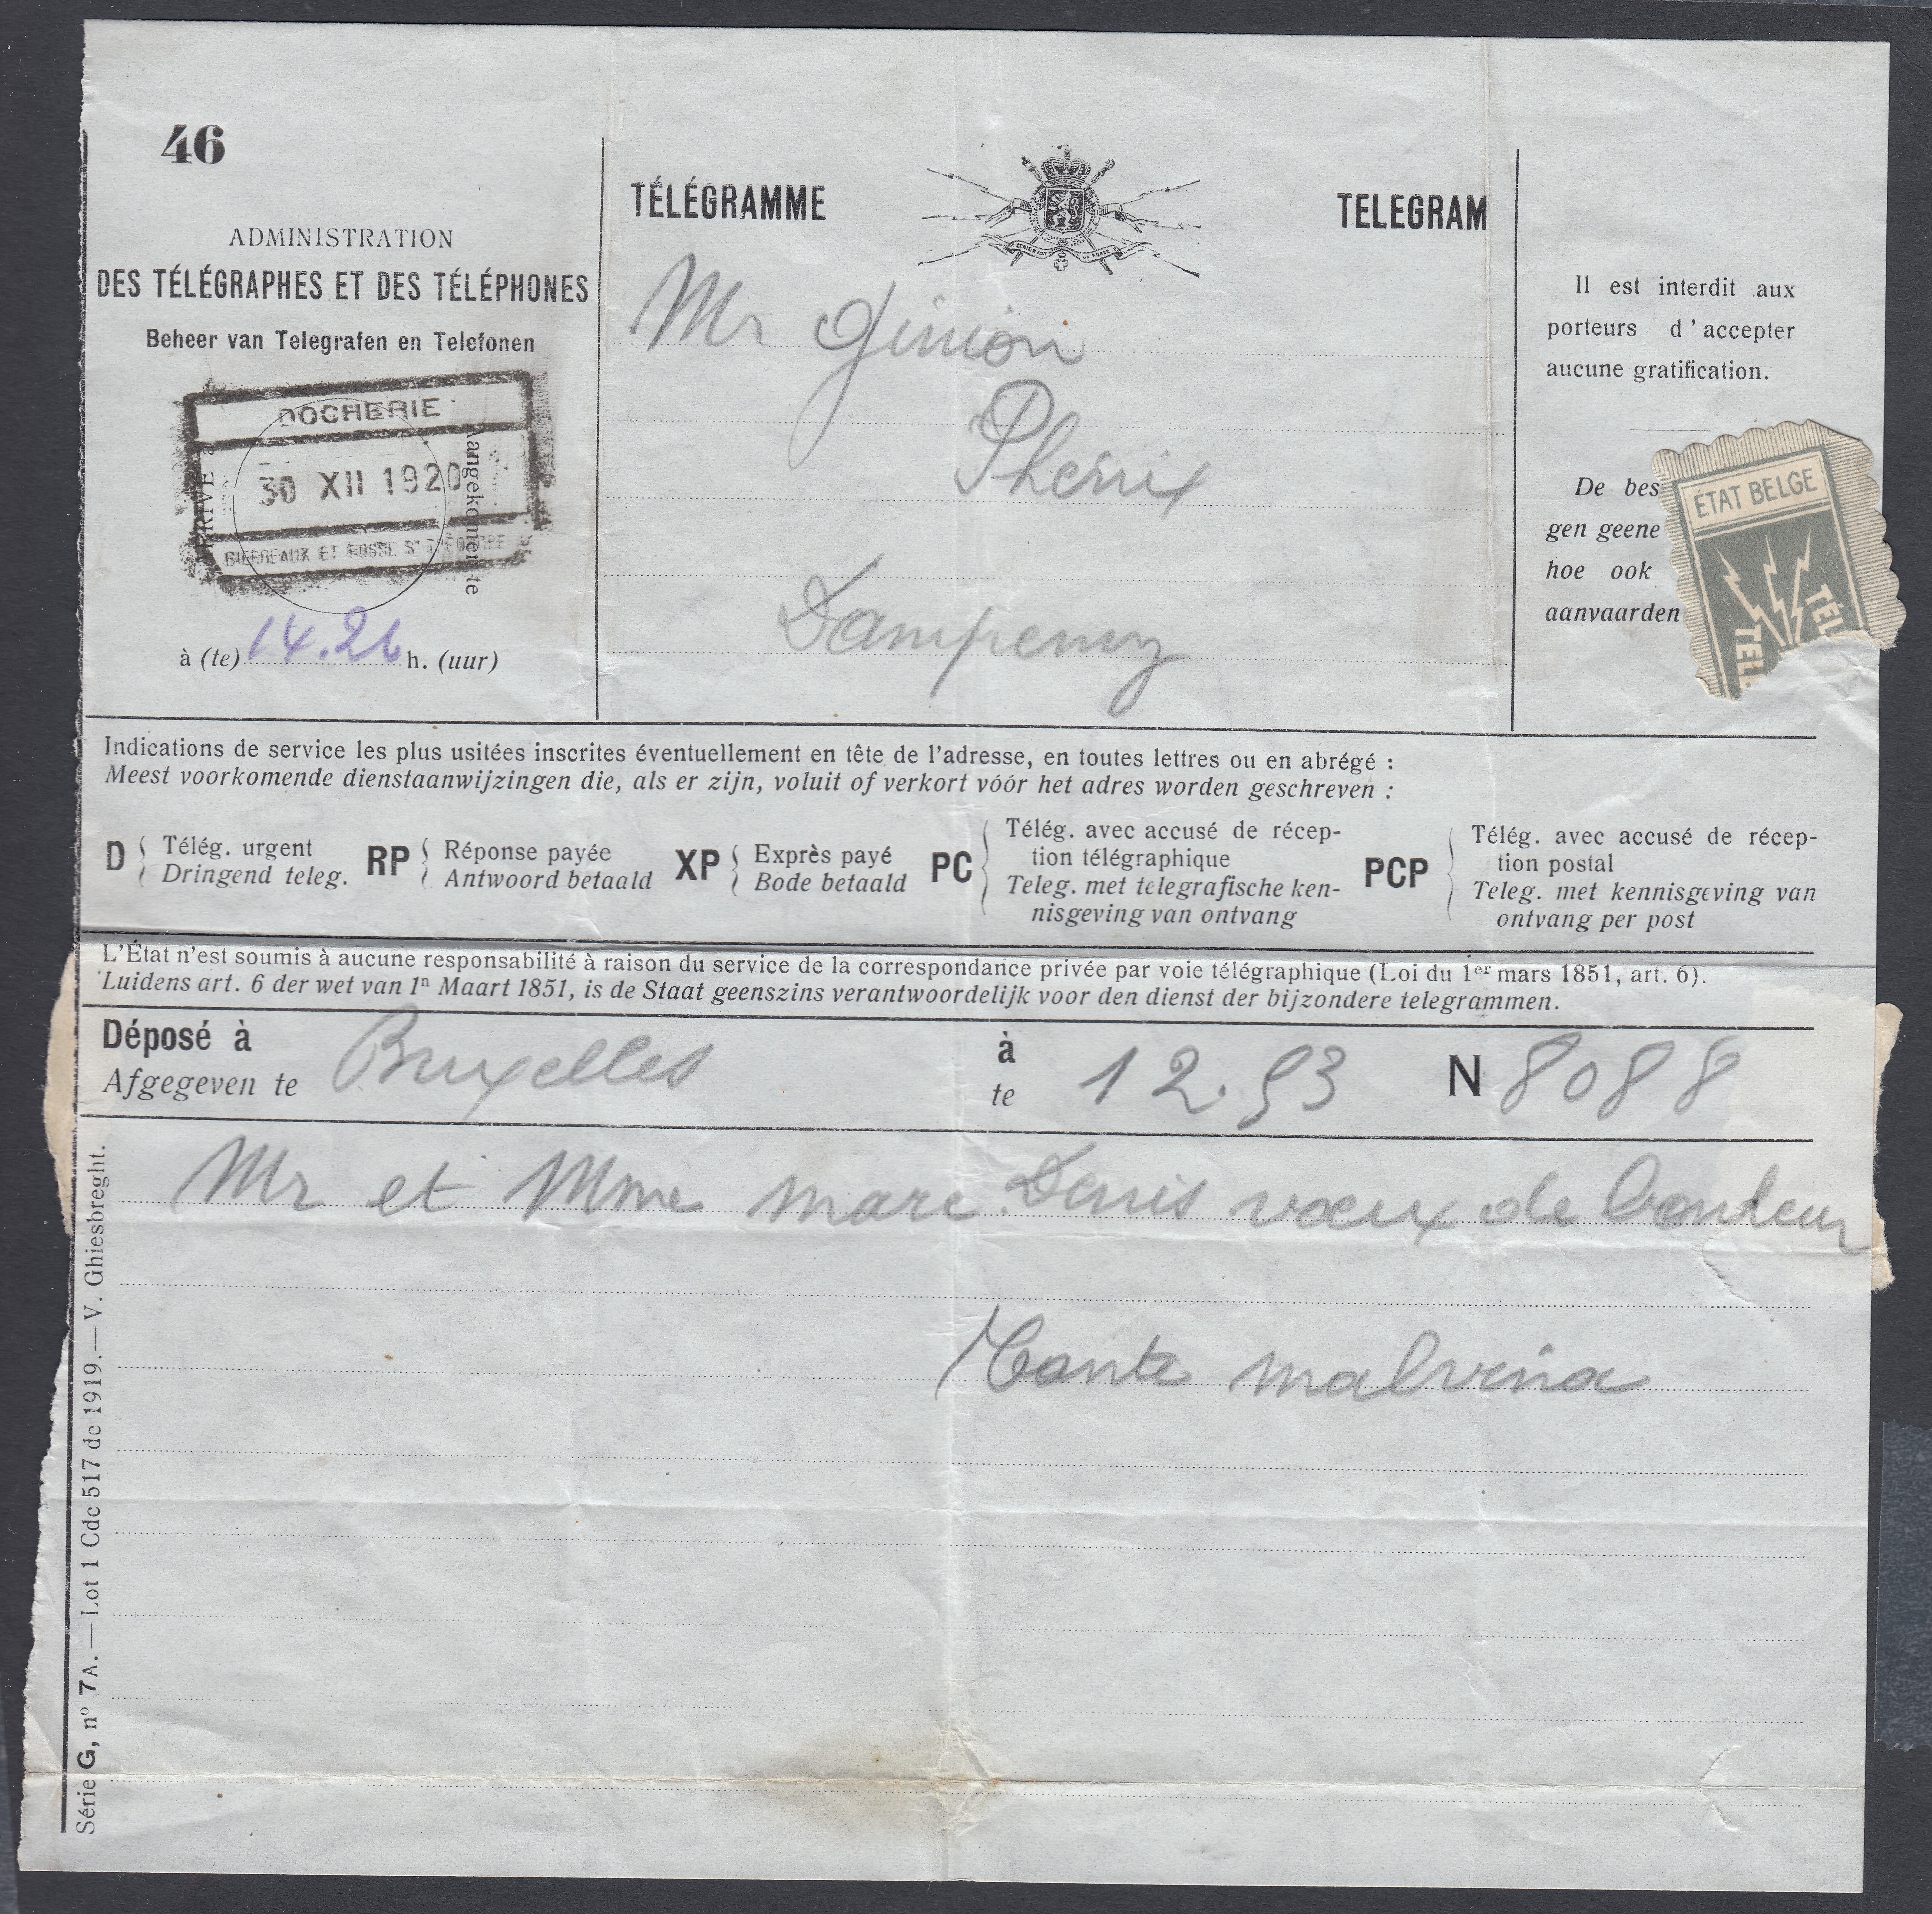 46
ADMINISTRATION
DES TÉLÉGRAPHES ET DES TÉLÉPHONES
Beheer van Telegrafen en Telefonen
DOCHERIE
ARRIVÉ à
30 XII 1920
Aangekomen te
ET FOSSE
à (te) 14.26 h. (uur)
TÉLÉGRAMME
TELEGRAM
Mr Ginion
Phenix
Dampremy
Il est interdit aux
porteurs d'accepter
aucune gratification.
De bes
gen geene
hoe ook
aanvaarden
ÉTAT BELGE
TEL
TÉL
Indications de service les plus usitées inscrites éventuellement en tête de l'adresse, en toutes lettres ou en abrégé :
Meest voorkomende dienstaanwijzingen die, als er zijn, voluit of verkort vóór het adres worden geschreven :
D { Télég. urgent
Dringend teleg.
RP { Réponse payée
Antwoord betaald
XP { Exprès payé
Bode betaald
PC { Télég. avec accusé de récep-
tion télégraphique
Teleg. met telegrafische ken-
nisgeving van ontvang
PCP { Télég. avec accusé de récep-
tion postal
Teleg. met kennisgeving van
ontvang per post
L'État n'est soumis à aucune responsabilité à raison du service de la correspondance privée par voie télégraphique (Loi du 1er mars 1851, art. 6).
Luidens art. 6 der wet van 1n Maart 1851, is de Staat geenszins verantwoordelijk voor den dienst der bijzondere telegrammen.
Déposé à Bruxelles à 12.53 N 8088
Afgegeven te te
Mr et Mme marc Denis vœux de bonheur
Tante malvina
Série G, nº 7A. — Lot 1 Cdc 517 de 1919. — V. Ghiesbreght.